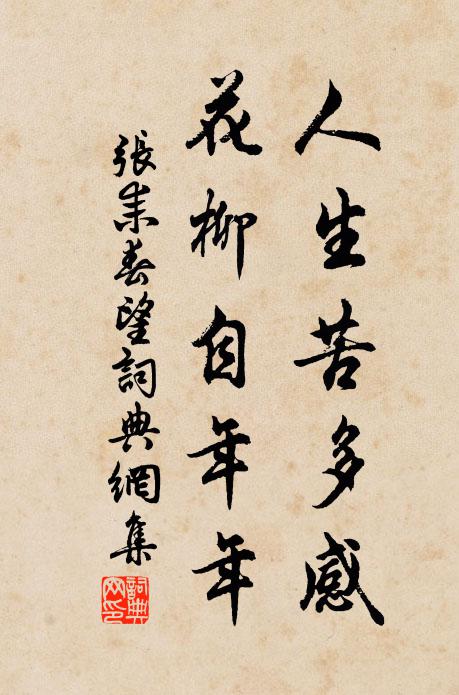 人生苦多感
花柳自年年
張耒春望詞典網集
詞典
网印